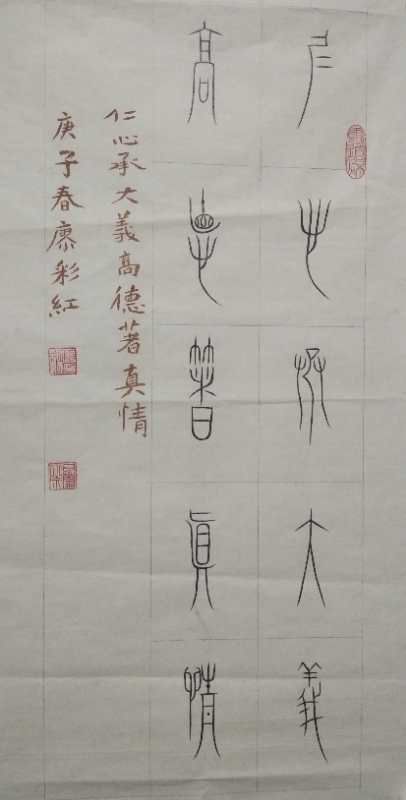 仁心承大義
高悳著真情
仁心承大義高德著真情
庚子春廖彩紅